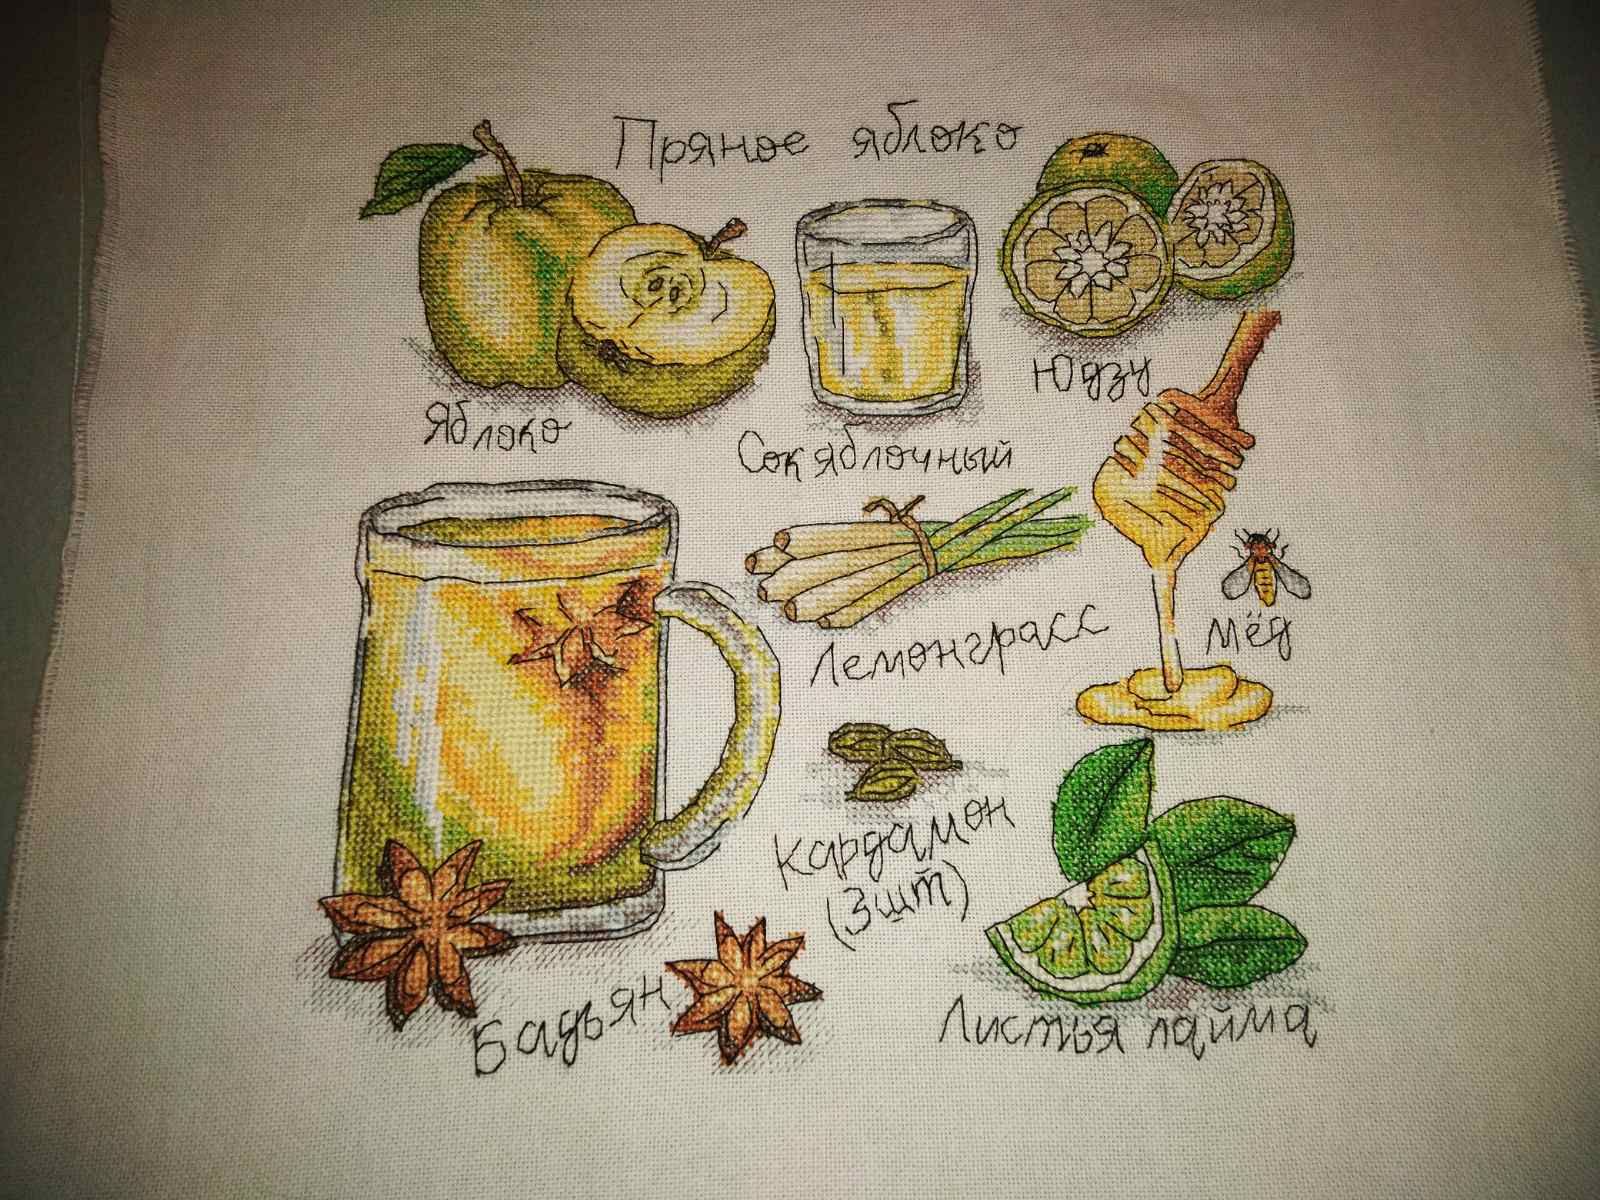 Пряное яблоко
Яблоко
Сок яблочный
Юдзу
Лемонграсс
Мёд
Кардамон
(3шт)
Бадьян
Листья лайма